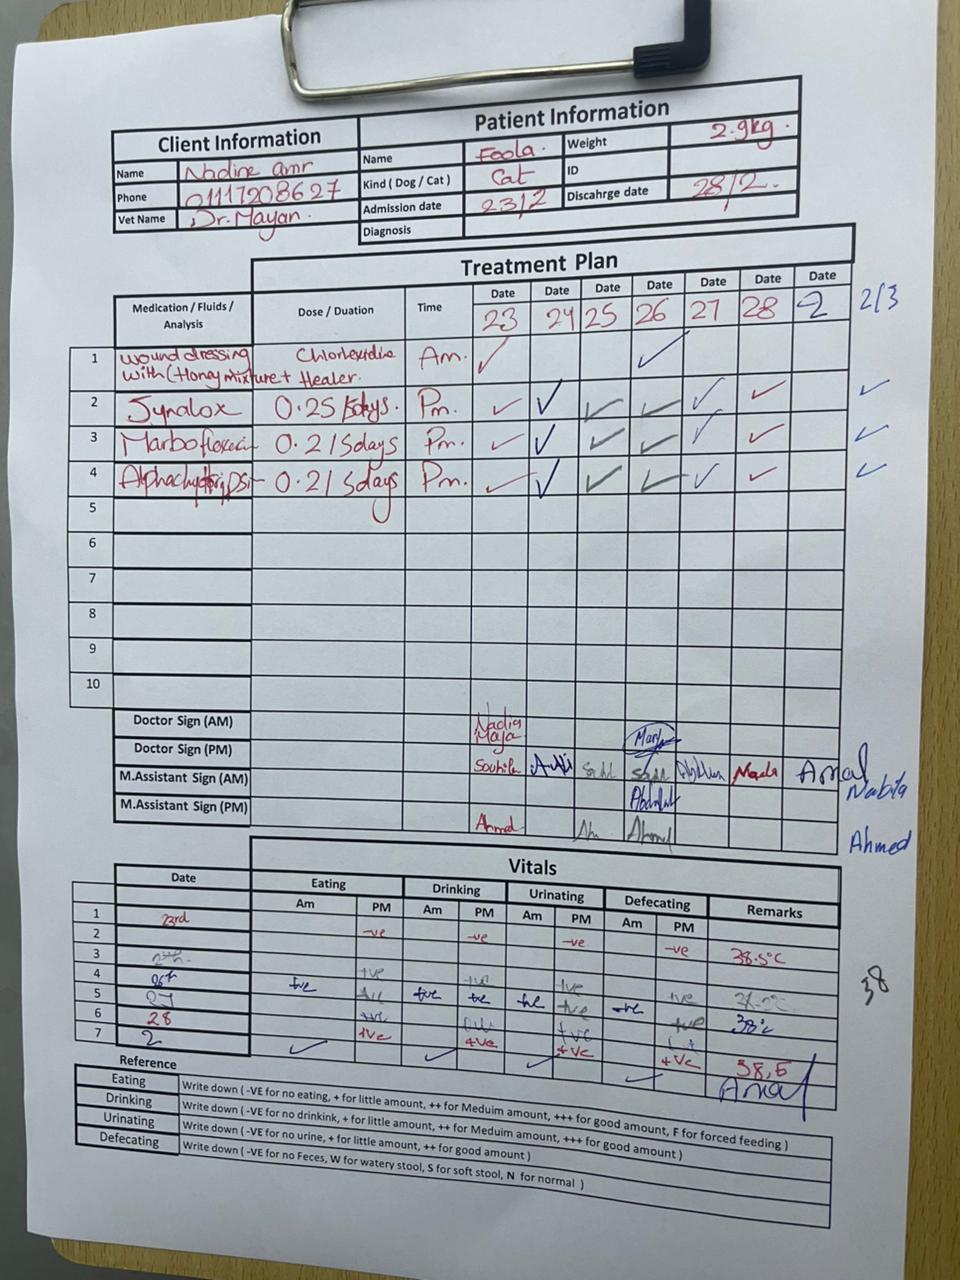 Client Information
Patient Information
Name Nadine amr
Phone 01117208627
Vet Name Dr. Mayan.
Name Foola. Weight 2.9kg.
Kind ( Dog / Cat ) Cat ID
Admission date 23/2 Discahrge date 28/2.
Diagnosis
Treatment Plan
Medication / Fluids / Analysis Dose / Duation Time Date Date Date Date Date Date Date
23 24 25 26 27 28 2 2/3
1 wound dressing Chlorhexidine Am. ✓ ✓
with (Honey mixture + Healer.
2 Synalox 0.25/5days. Pm. ✓ ✓ ✓ ✓ ✓ ✓ ✓
3 0.2/5days Pm. ✓ ✓ ✓ ✓ ✓ ✓ ✓
4 0.2/5days Pm. ✓ ✓ ✓ ✓ ✓ ✓ ✓
5
6
7
8
9
10
Doctor Sign (AM) Nadia Maya
Doctor Sign (PM) Souhila Nada Amal
M.Assistant Sign (AM) Nabila
M.Assistant Sign (PM) Ahmed Ahmed
Vitals
Date Eating Drinking Urinating Defecating Remarks
Am PM Am PM Am PM Am PM
1 23rd -ve -ve -ve -ve 38.5°C
2
3
4 26th +ve +ve +ve
5 27 +ve +ve +ve +ve +ve -ve +ve 38°c 38
6 28 +ve +ve +ve +ve 38,5
7 2 ✓ ✓ ✓ ✓ Amal
Reference
Eating Write down ( -VE for no eating, + for little amount, ++ for Meduim amount, +++ for good amount, F for forced feeding )
Drinking Write down ( -VE for no drinkink, + for little amount, ++ for Meduim amount, +++ for good amount )
Urinating Write down ( -VE for no urine, + for little amount, ++ for good amount )
Defecating Write down ( -VE for no Feces, W for watery stool, S for soft stool, N for normal )